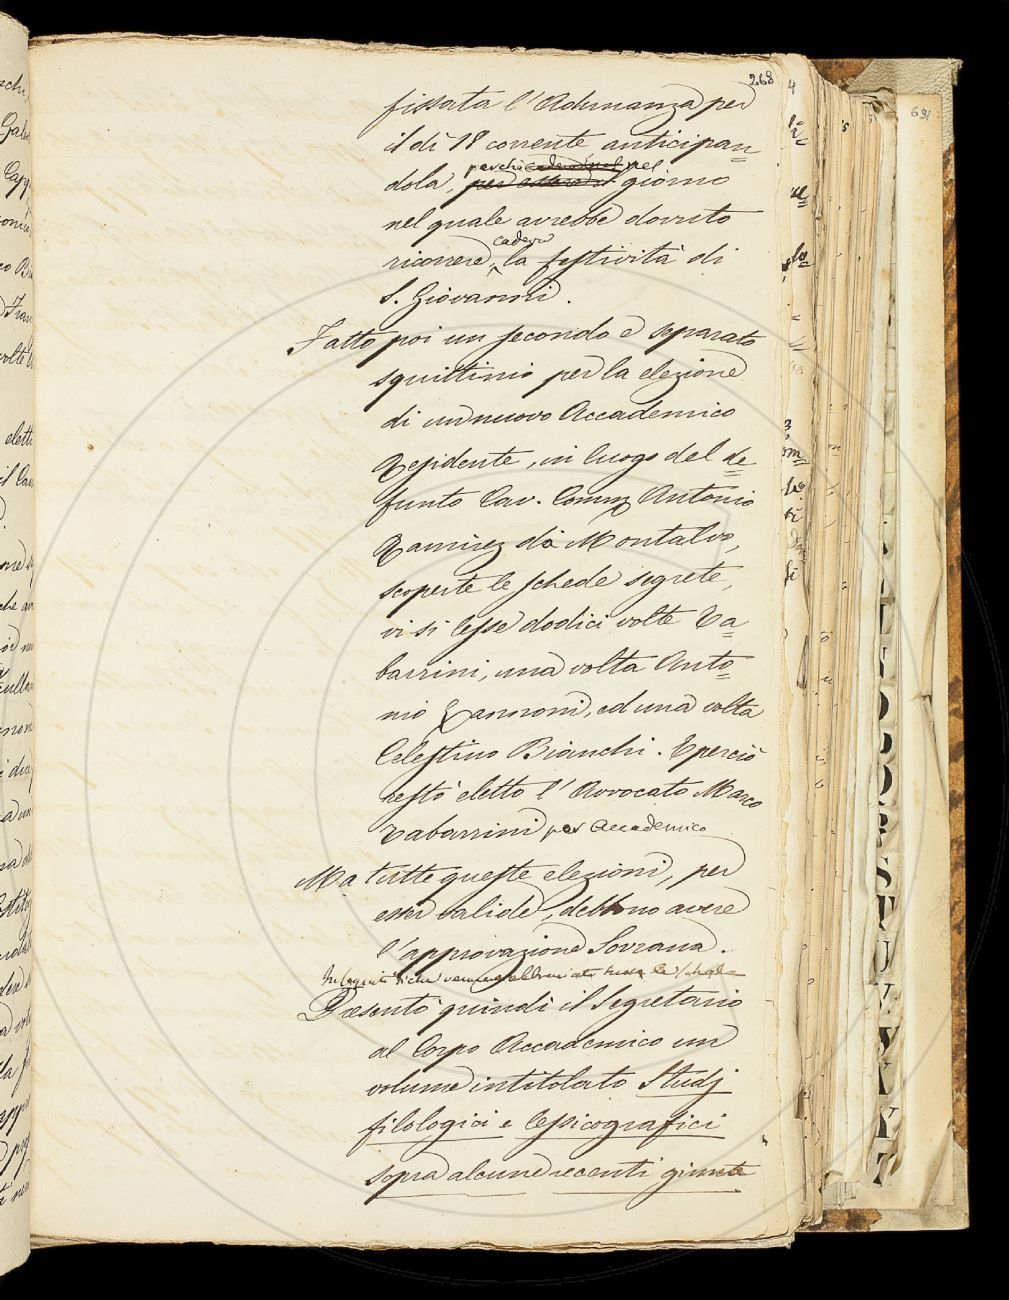 268
fissata l'Adunanza per
il dì 18 corrente anticipan=
perchè nel
dola, per essere il giorno
nel quale avrebbe dovuto
cadeva
ricorrere, la festività di
S. Giovanni.
Fatto poi un secondo e separato
squittinio per la elezione
di un nuovo Accademico
Residente, in luogo del de=
funto Cav. Comm. Antonio
Ramirez da Montalvo,
scoperte le schede segrete,
vi si lesse dodici volte Ta=
barrini, una volta Anto=
nio Zannoni, ed una volta
Celestino Bianchi. E perciò
restò eletto l'Avvocato Marco
Tabarrini per Accademico
Ma tutte queste elezioni, per
esser valide, debbono avere
l'approvazione Sovrana.
In seguito di che vennero abbruciate tutte le schede
Presentò quindi il Segretario
al Corpo Accademico un
volume intitolato Studj
filologici e lessicografici
sopra alcune recenti giunte
691